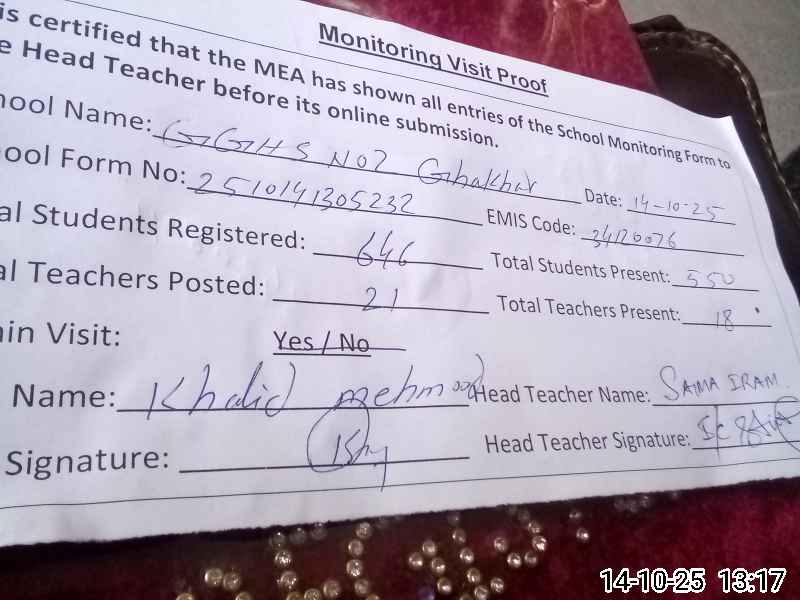 Monitoring Visit Proof
is certified that the MEA has shown all entries of the School Monitoring Form to
e Head Teacher before its online submission.
hool Name: GGHS NO2 Ghakhar Date: 14-10-25
ool Form No: 2510141305232 EMIS Code: 34120076
al Students Registered: 646 Total Students Present: 550
al Teachers Posted: 21 Total Teachers Present: 18
ain Visit: Yes / No
Name: Khalid mehmood Head Teacher Name: SAIMA IRAM.
Signature: Head Teacher Signature:
14-10-25 13:17